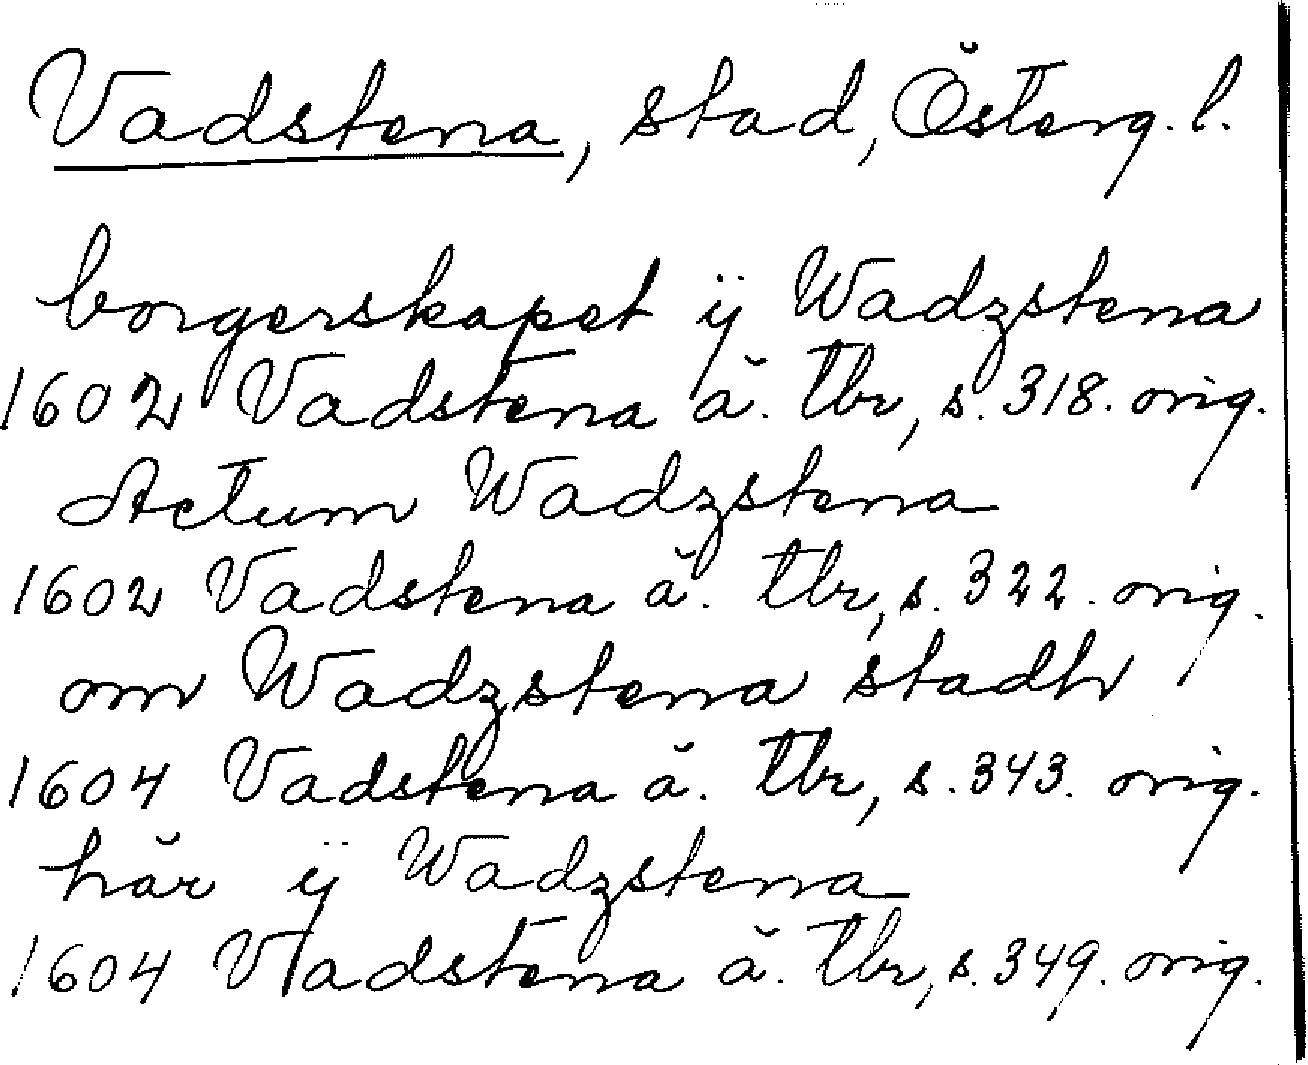 Vadstena, stad, Österg. l.
borgerskapet ÿ Wadzstena
1602 Vadstena ä. tbr, s. 318. orig.
Actum Wadzstena
1602 Vadstena ä. tbr, s. 322. orig.
om Wadzstena stadh
1604 Vadstena ä. tbr, s. 343. orig.
här ÿ Wadzstena
1604 Vadstena ä. tbr, s. 349. orig.